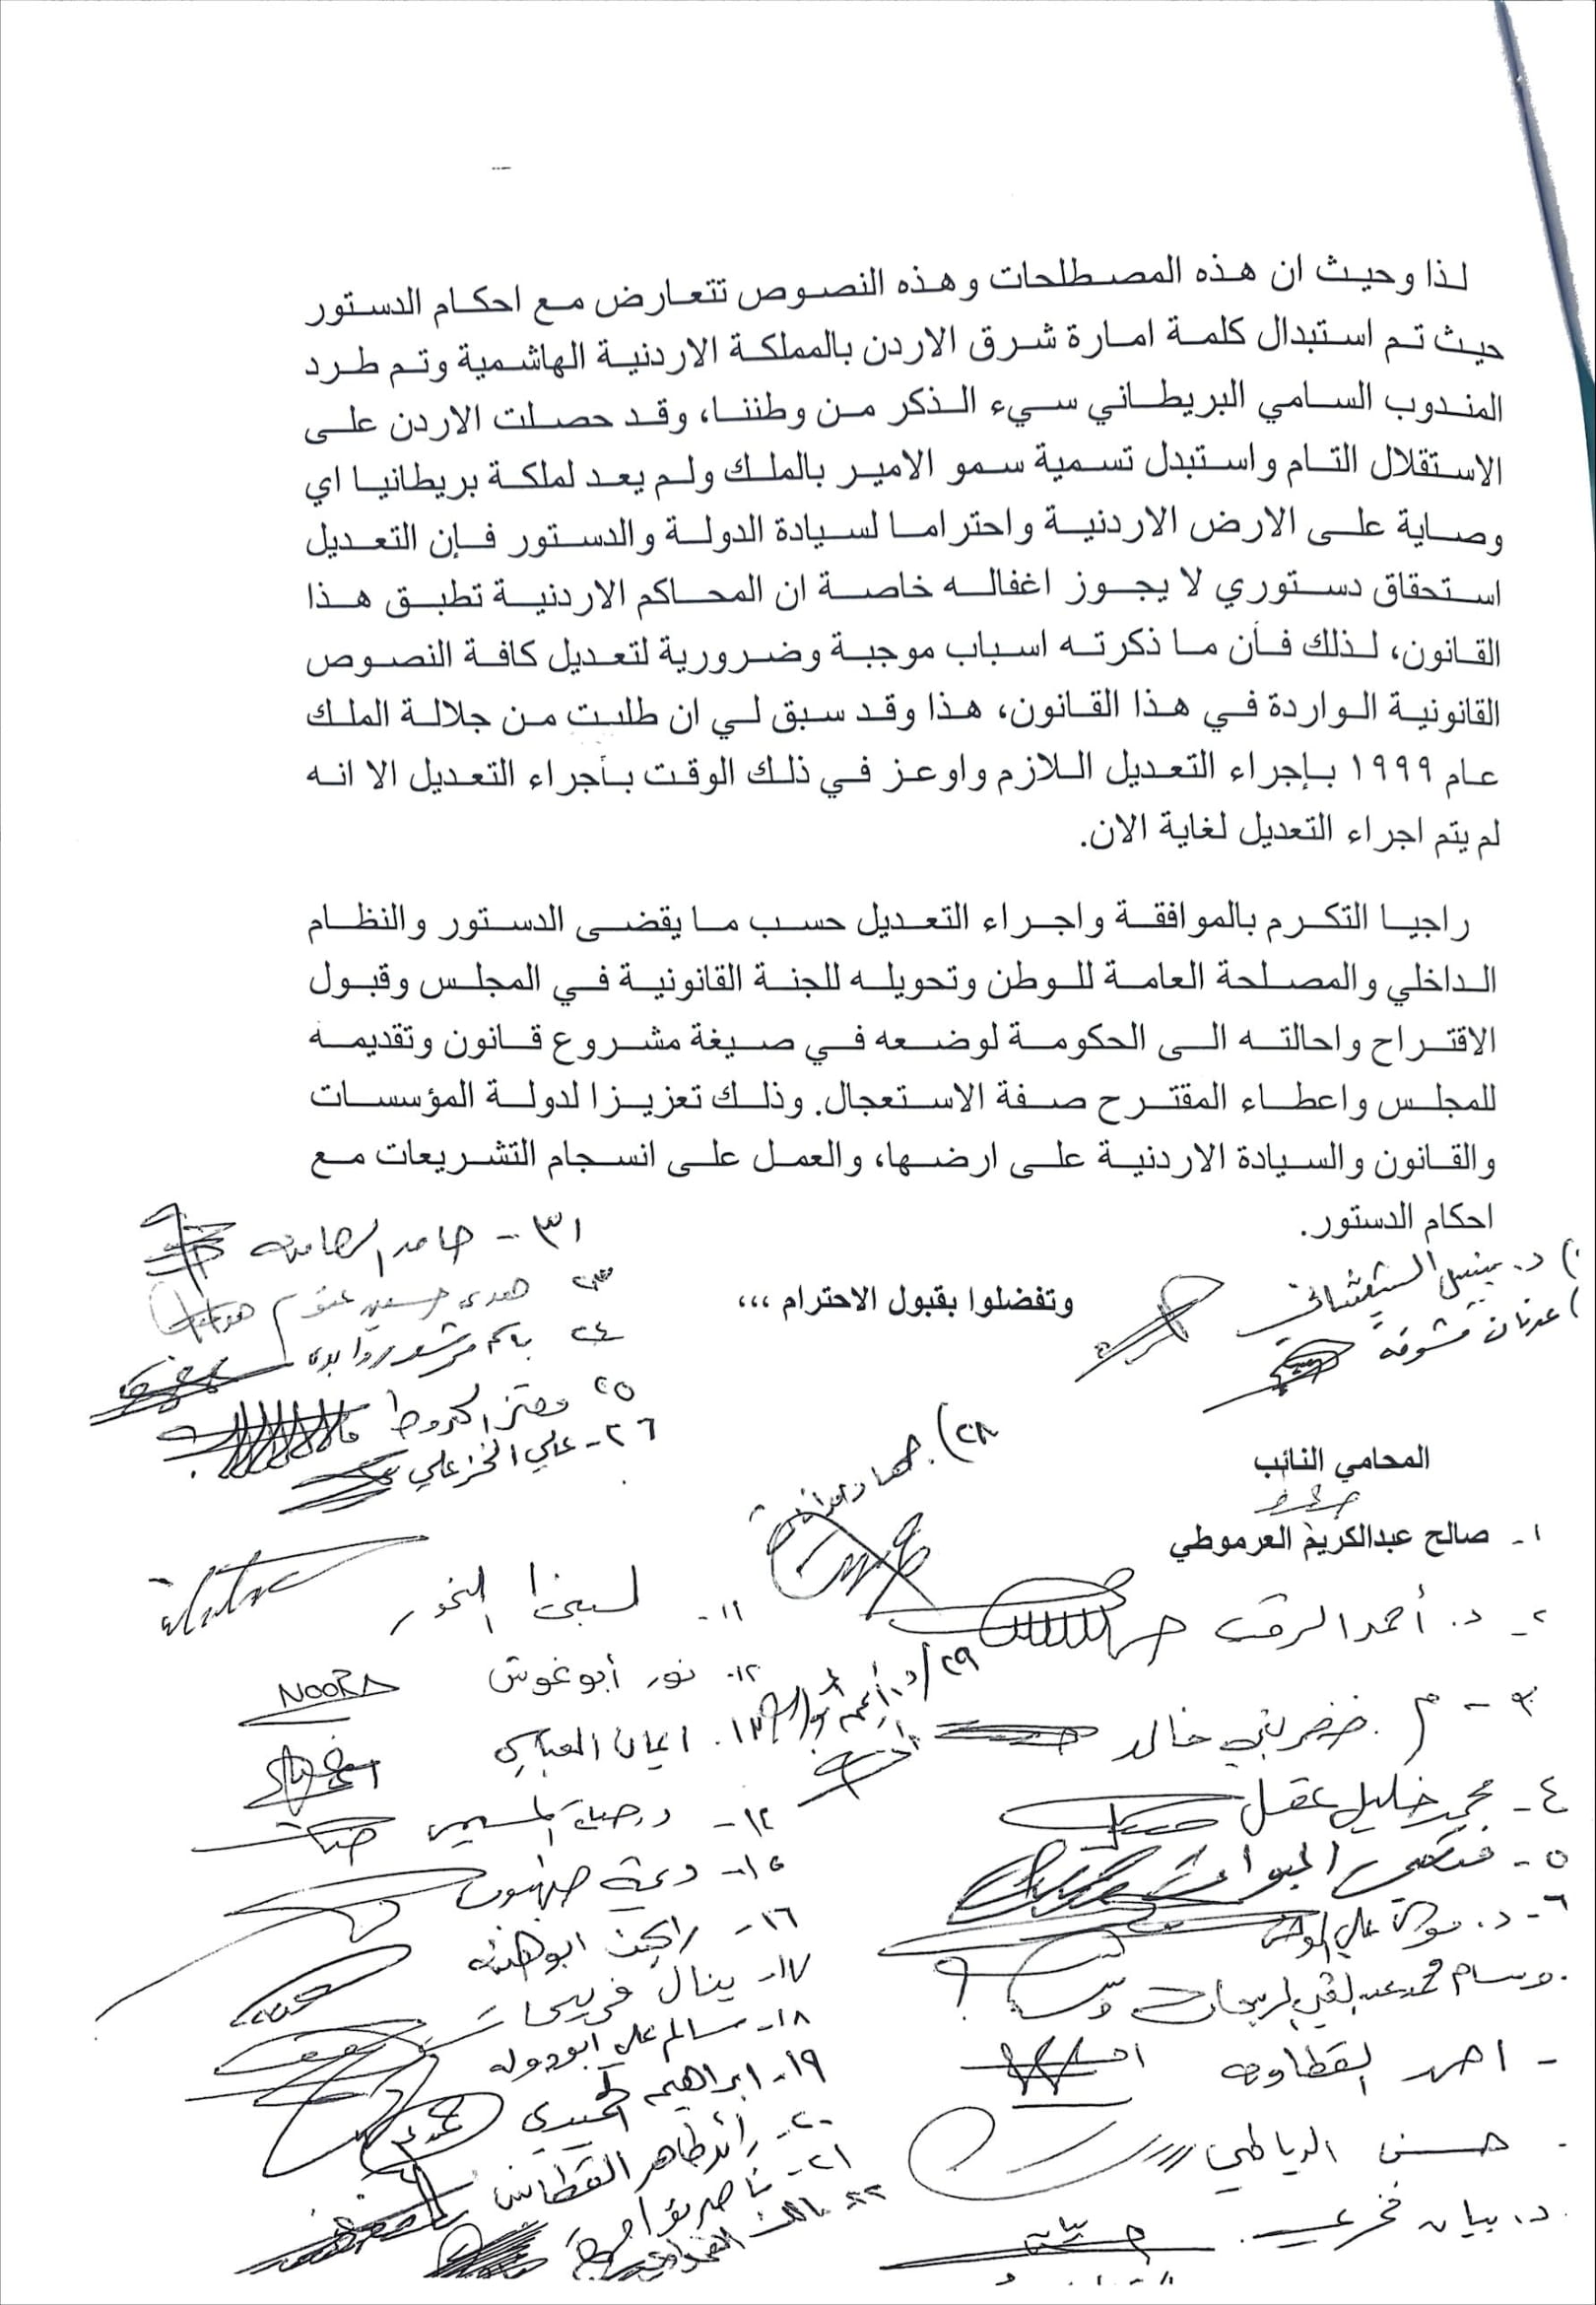 لذا وحيث ان هذه المصطلحات وهذه النصوص تتعارض مع احكام الدستور
حيث تم استبدال كلمة امارة شرق الاردن بالمملكة الاردنية الهاشمية وتم طرد
المندوب السامي البريطاني سيء الذكر من وطننا، وقد حصلت الاردن على
الاستقلال التام واستبدل تسمية سمو الامير بالملك ولم يعد لملكة بريطانيا اي
وصاية على الارض الاردنية واحتراما لسيادة الدولة والدستور فإن التعديل
استحقاق دستوري لا يجوز اغفاله خاصة ان المحاكم الاردنية تطبق هذا
القانون، لذلك فأن ما ذكرته اسباب موجبة وضرورية لتعديل كافة النصوص
القانونية الواردة في هذا القانون، هذا وقد سبق لي ان طلبت من جلالة الملك
عام ١٩٩٩ بإجراء التعديل اللازم واوعز في ذلك الوقت بأجراء التعديل الا انه
لم يتم اجراء التعديل لغاية الان.
راجيا التكرم بالموافقة واجراء التعديل حسب ما يقضى الدستور والنظام
الداخلي والمصلحة العامة للوطن وتحويله للجنة القانونية في المجلس وقبول
الاقتراح واحالته الى الحكومة لوضعه في صيغة مشروع قانون وتقديمه
للمجلس واعطاء المقترح صفة الاستعجال. وذلك تعزيزا لدولة المؤسسات
والقانون والسيادة الاردنية على ارضها، والعمل على انسجام التشريعات مع
احكام الدستور.
وتفضلوا بقبول الاحترام ،،،
عدنان مشوقة
المحامي النائب
١- صالح عبدالكريم العرموطي
٢- د. أحمد الرقب
٣- م. خضر بني خالد
٤- محمد خليل عقل
٥-
٦- د.
احمد القطاونه
حسن الرياطي
د. بيان
٣١- حامد
هدى حسين عتوم
٢٤
باسم مرشد روابدة
٢٥
٢٦- علي الخزعلي
٢٨)
٢٩
١١- لبنى النمور
١٢- نور أبو غوش
NOORA
١٣. ايمان العباسي
١٤-
١٥- ديمة طهبوب
١٦- راكين ابو هنيه
١٧- ينال فريحات
١٨- سالم علي ابو دوله
١٩- ابراهيم الحميدي
٢٠- رائد طاهر القطامين
٢١- ناصر نواصرة
٢٢